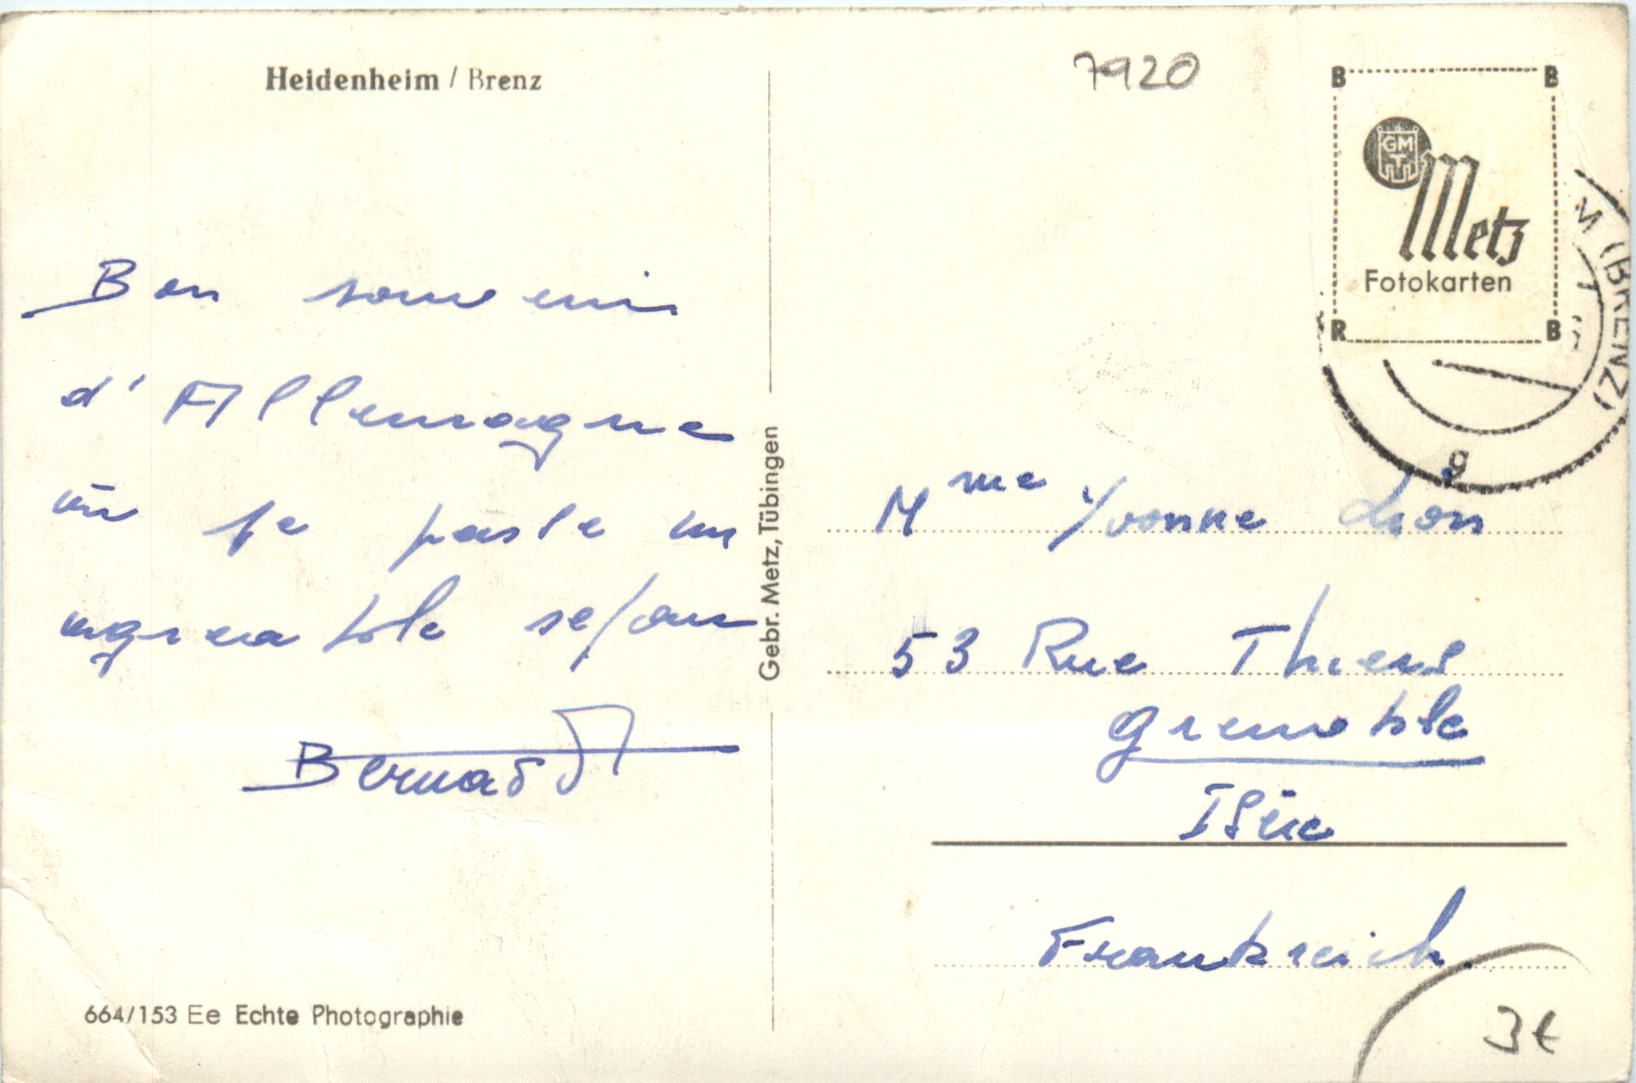 Heidenheim / Brenz
Bon souvenir
d'Allemagne
où je passe un
agreable sejour
Bernard
664/153 Ee Echte Photographie
Gebr. Metz, Tübingen
7920
B B
GMT
Metz
Fotokarten
R B
M (BRENZ)
g
Mme Yvonne Lion
53 Rue Thiers
Grenoble
Isère
Frankreich
3€